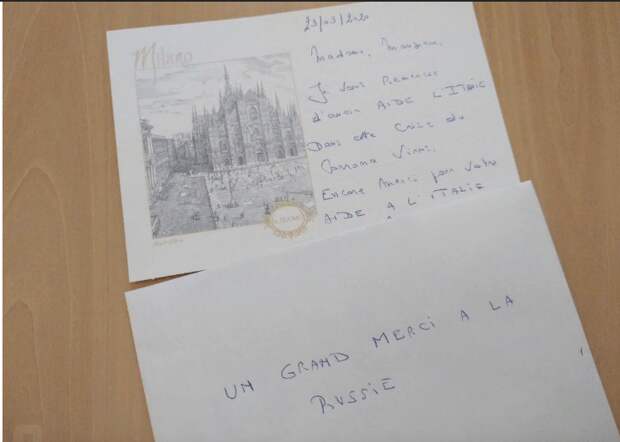 Milano
23/03/2020
Madame, Monsieur,
Je vous Remercie
d'avoir AIDE L'ITALIE
Dans cette Crise du
Corrona Virus.
Encore Merci pour votre
AIDE A L'ITALIE
UN GRAND MERCI A LA
RUSSIE